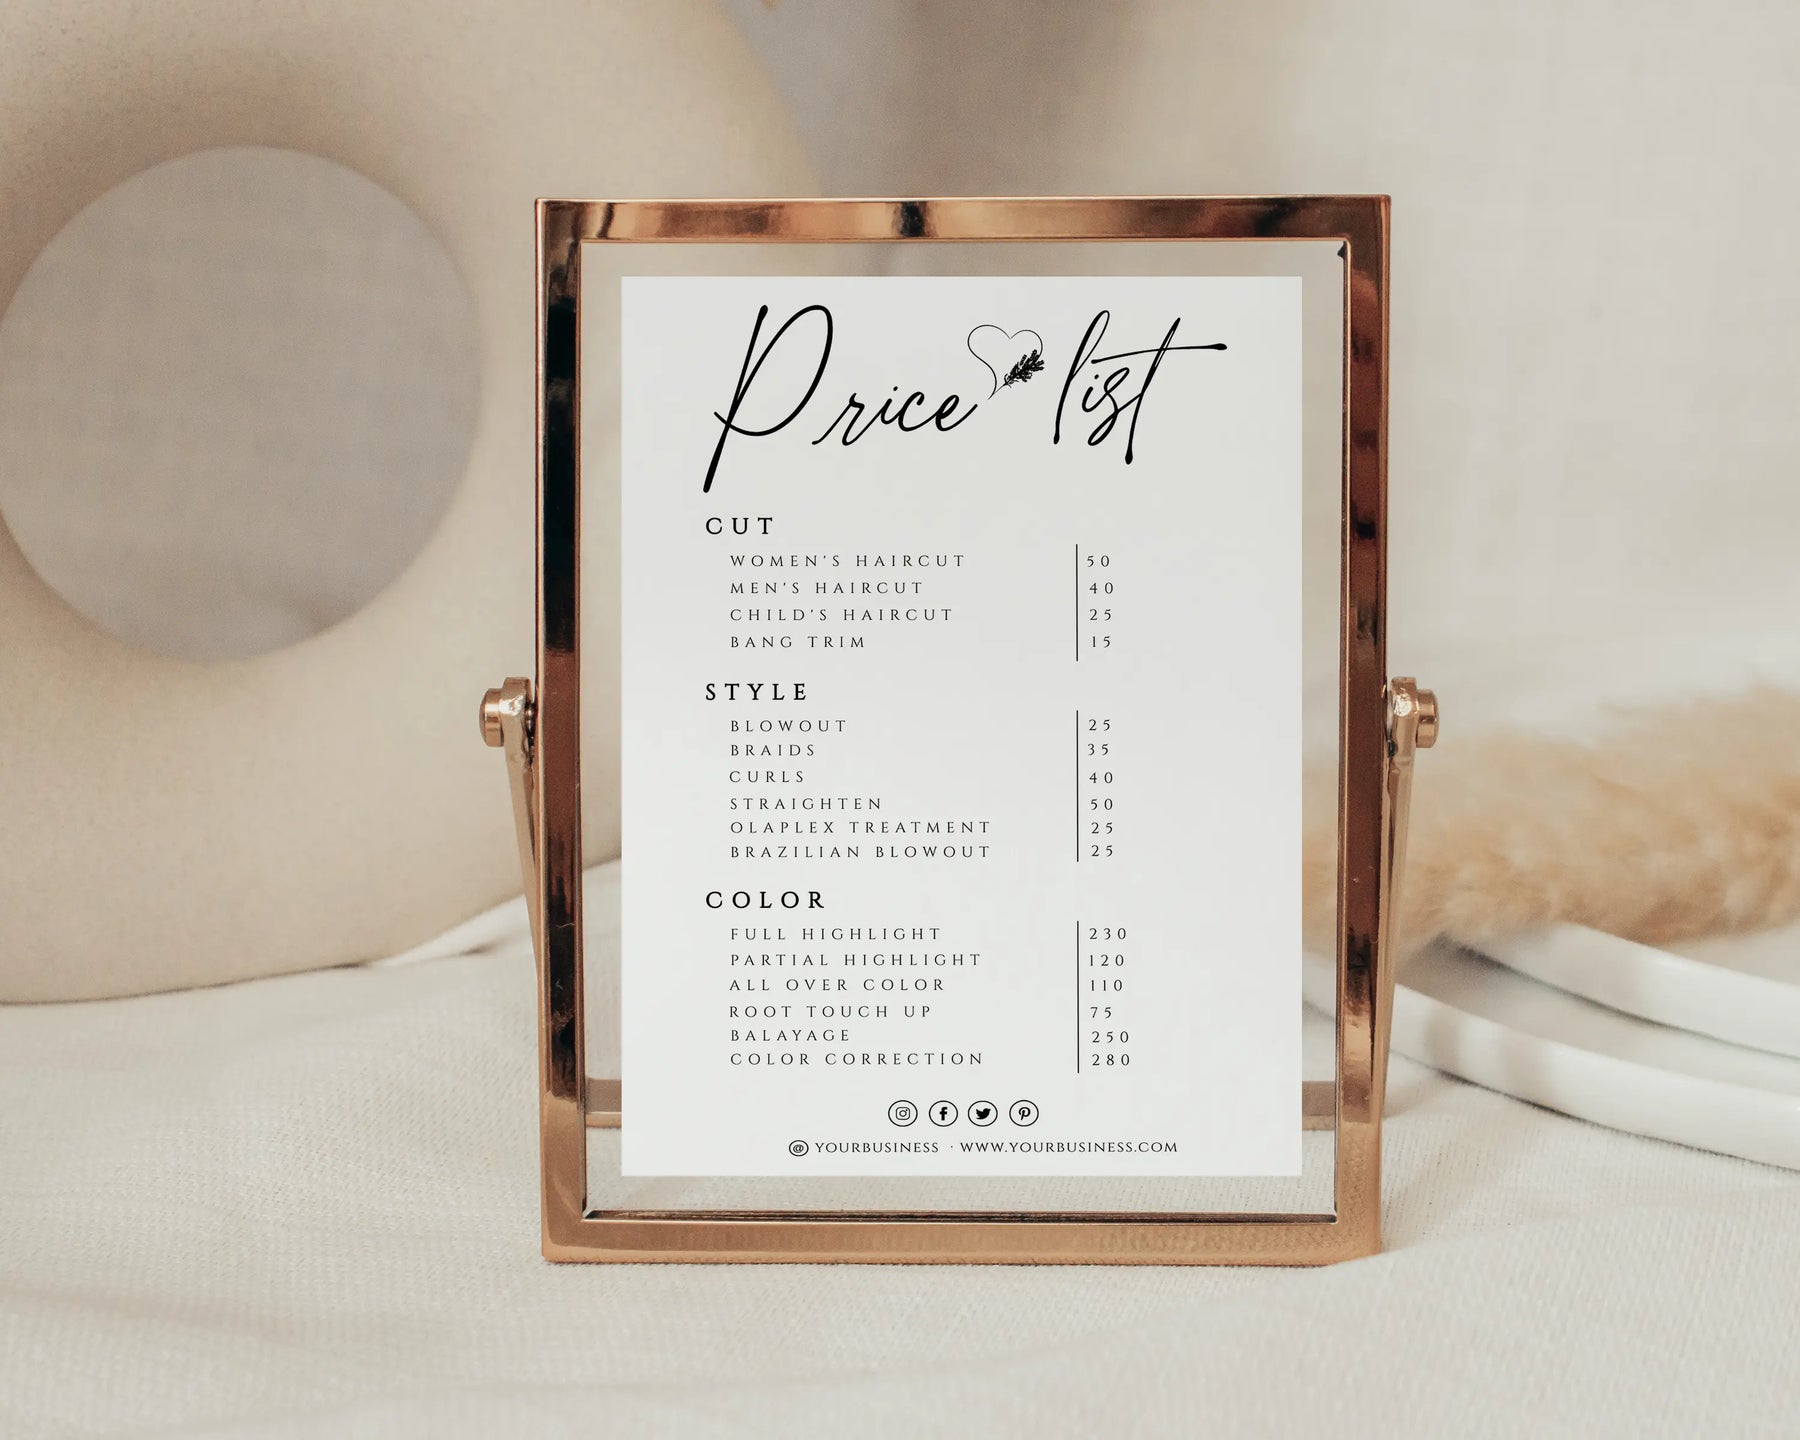 Price list
CUT
WOMEN'S HAIRCUT 50
MEN'S HAIRCUT 40
CHILD'S HAIRCUT 25
BANG TRIM 15
STYLE
BLOWOUT 25
BRAIDS 35
CURLS 40
STRAIGHTEN 50
OLAPLEX TREATMENT 25
BRAZILIAN BLOWOUT 25
COLOR
FULL HIGHLIGHT 230
PARTIAL HIGHLIGHT 120
ALL OVER COLOR 110
ROOT TOUCH UP 75
BALAYAGE 250
COLOR CORRECTION 280
@ YOURBUSINESS · WWW.YOURBUSINESS.COM